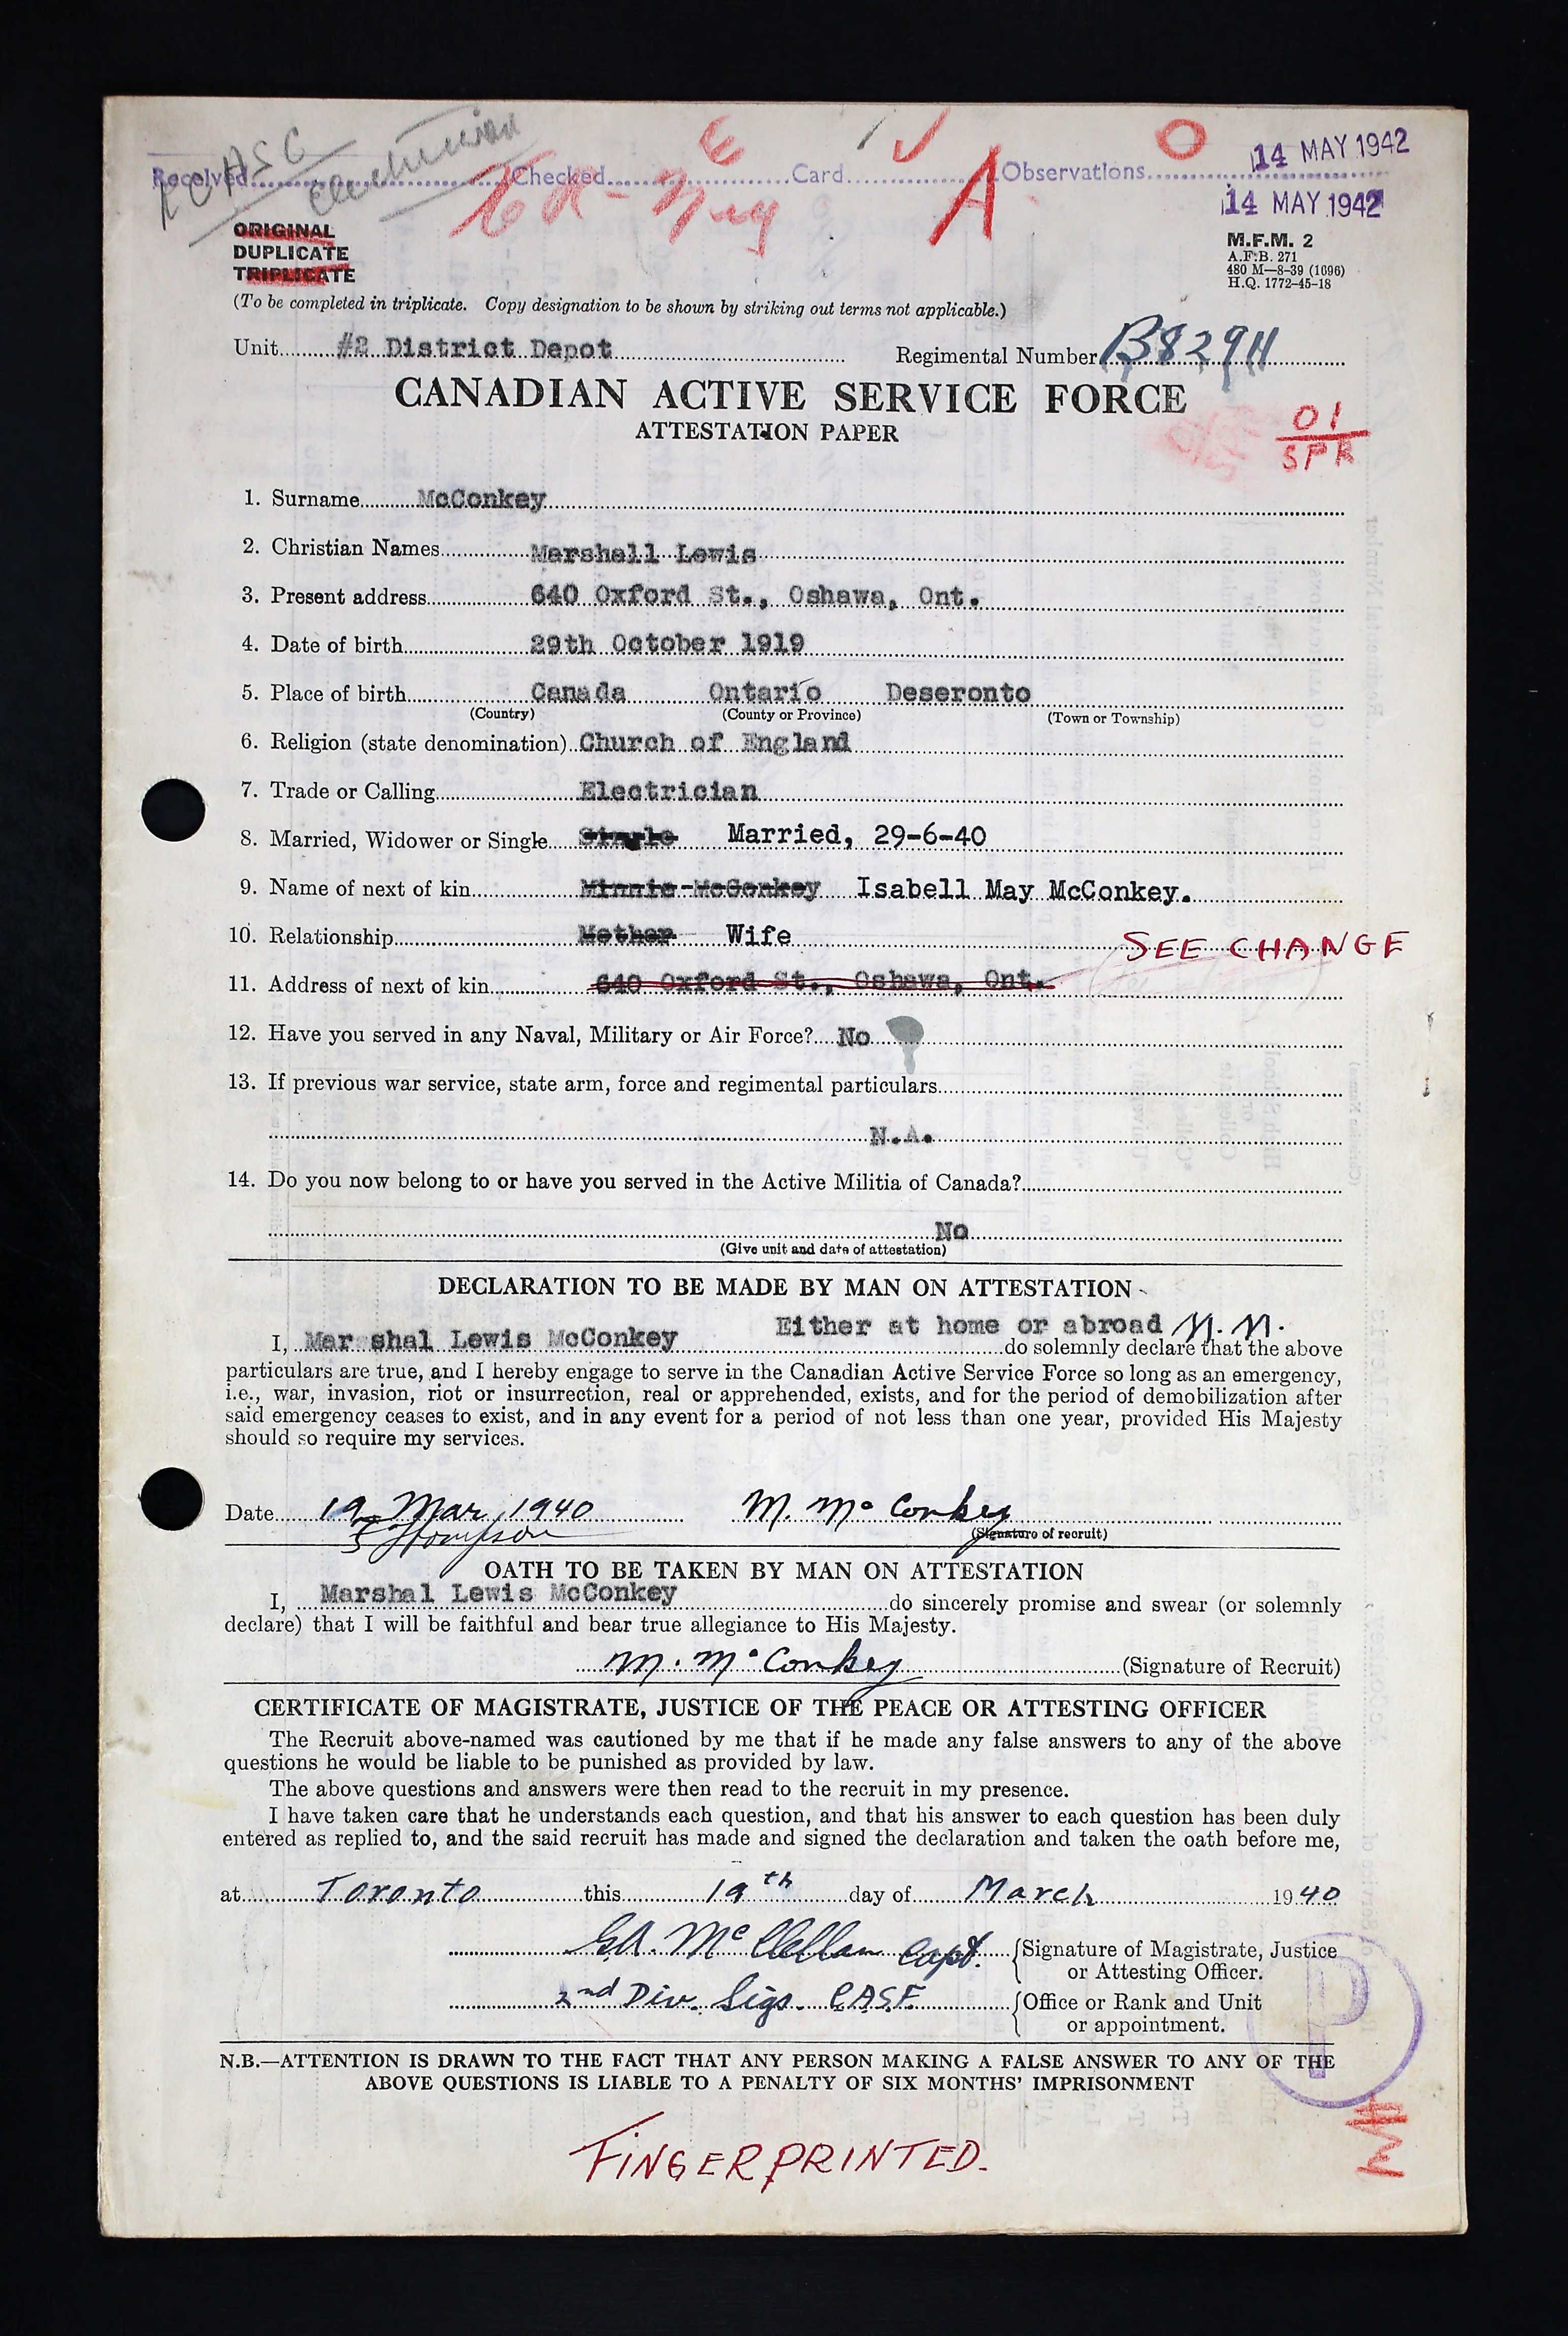 Received Checked Card Observations
14 MAY 1942
14 MAY 1942
E O
A
ORIGINAL
DUPLICATE
TRIPLICATE
M.F.M. 2
A.F.B. 271
480 M—8-39 (1096)
H.Q. 1772-45-18
(To be completed in triplicate. Copy designation to be shown by striking out terms not applicable.)
Unit #2 District Depot Regimental Number B82911
CANADIAN ACTIVE SERVICE FORCE
ATTESTATION PAPER
01
SPR
1. Surname McConkey
2. Christian Names Marshall Lewis
3. Present address 640 Oxford St., Oshawa, Ont.
4. Date of birth 29th October 1919
5. Place of birth Canada Ontario Deseronto
(Country) (County or Province) (Town or Township)
6. Religion (state denomination) Church of England
7. Trade or Calling Electrician
8. Married, Widower or Single Single Married, 29-6-40
9. Name of next of kin Minnie McConkey Isabell May McConkey.
10. Relationship Mother Wife SEE CHANGE
11. Address of next of kin 640 Oxford St., Oshawa, Ont.
12. Have you served in any Naval, Military or Air Force? No
13. If previous war service, state arm, force and regimental particulars
N.A.
14. Do you now belong to or have you served in the Active Militia of Canada?
No
(Give unit and date of attestation)
DECLARATION TO BE MADE BY MAN ON ATTESTATION
Either at home or abroad
I, Mar shal Lewis McConkey do solemnly declare that the above
particulars are true, and I hereby engage to serve in the Canadian Active Service Force so long as an emergency,
i.e., war, invasion, riot or insurrection, real or apprehended, exists, and for the period of demobilization after
said emergency ceases to exist, and in any event for a period of not less than one year, provided His Majesty
should so require my services.
Date 19 Mar, 1940 M. Mc Conkey
Thompson (Signature of recruit)
OATH TO BE TAKEN BY MAN ON ATTESTATION
I, Marshal Lewis McConkey do sincerely promise and swear (or solemnly
declare) that I will be faithful and bear true allegiance to His Majesty.
M. Mc Conkey (Signature of Recruit)
CERTIFICATE OF MAGISTRATE, JUSTICE OF THE PEACE OR ATTESTING OFFICER
The Recruit above-named was cautioned by me that if he made any false answers to any of the above
questions he would be liable to be punished as provided by law.
The above questions and answers were then read to the recruit in my presence.
I have taken care that he understands each question, and that his answer to each question has been duly
entered as replied to, and the said recruit has made and signed the declaration and taken the oath before me,
at Toronto this 19th day of March 1940
G.A. McClellan Capt. Signature of Magistrate, Justice
or Attesting Officer.
2nd Div. Sigs. C.A.S.F. Office or Rank and Unit
or appointment.
P
N.B.—ATTENTION IS DRAWN TO THE FACT THAT ANY PERSON MAKING A FALSE ANSWER TO ANY OF THE
ABOVE QUESTIONS IS LIABLE TO A PENALTY OF SIX MONTHS' IMPRISONMENT
FINGERPRINTED.